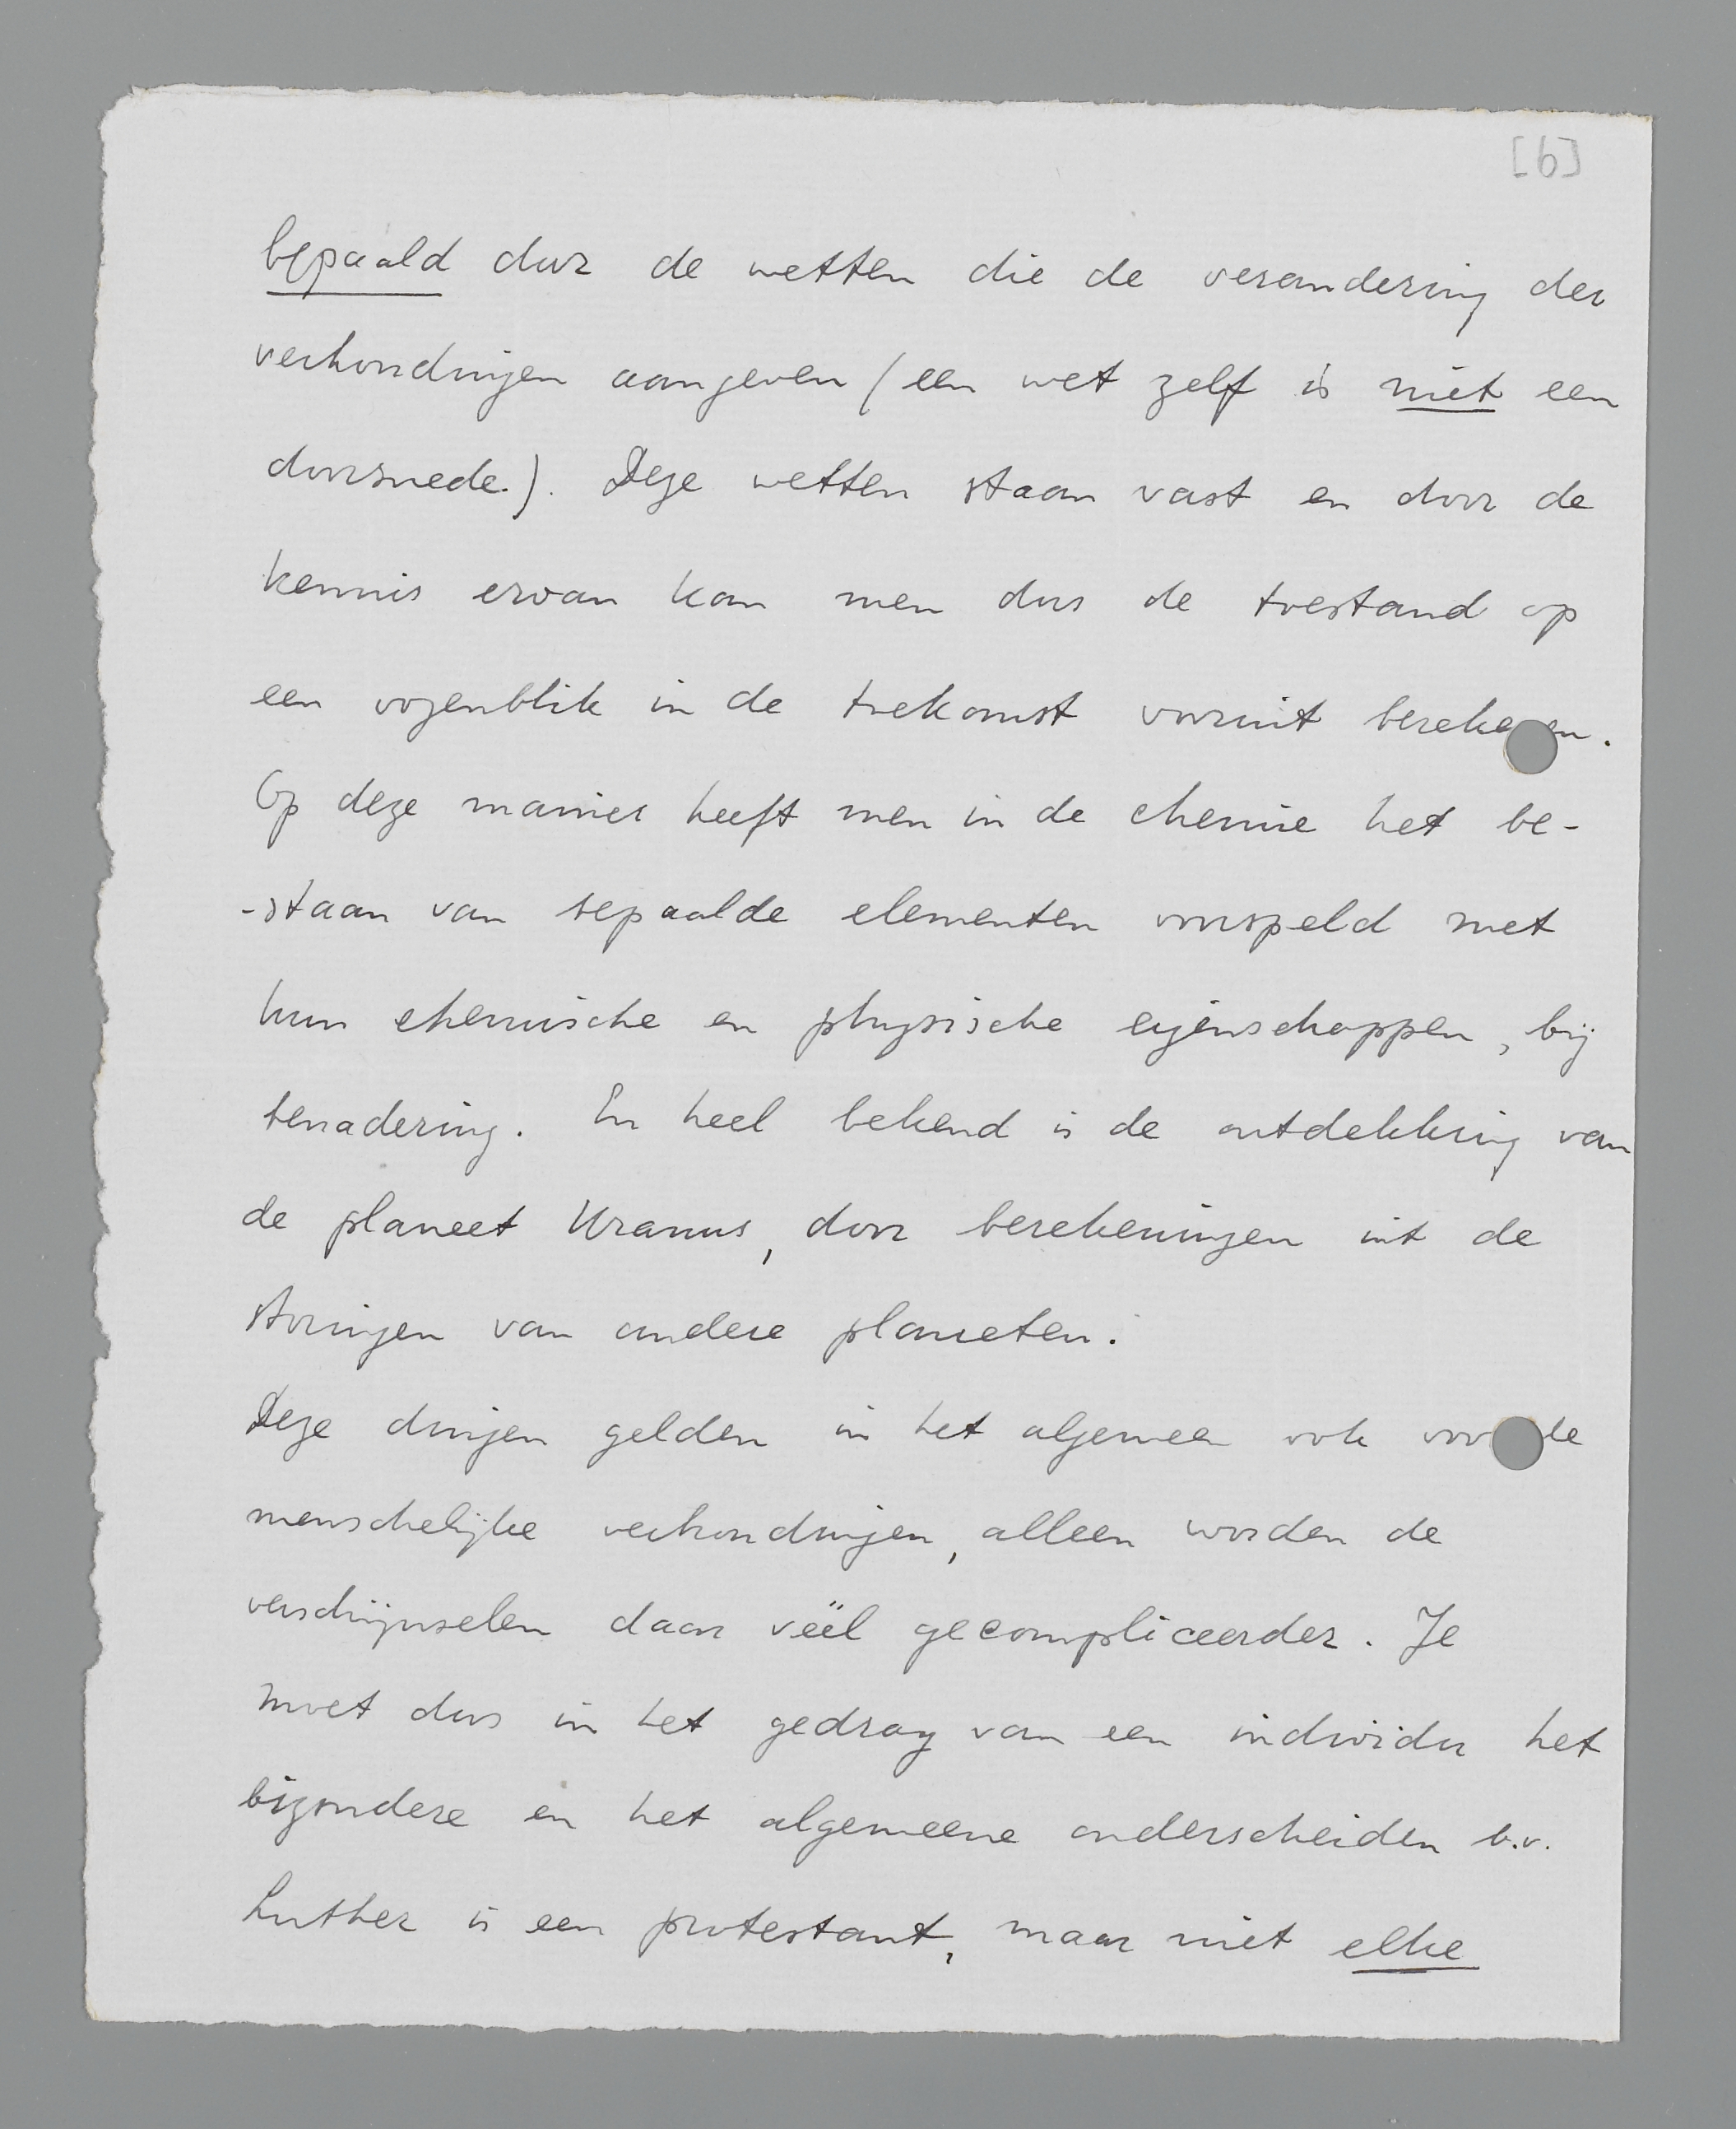 [6]
bepaald door de wetten die de verandering der
verhoudingen aangeven (een wet zelf is niet een
doorsnede.). Deze wetten staan vast en door de
kennis ervan kan men dus de toestand op
een oogenblik in de toekomst vooruit berekenen.
Op deze manier heeft men in de chemie het be-
-staan van bepaalde elementen voorspeld met
hun chemische en physische eigenschappen, bij
benadering. En heel bekend is de ontdekking van
de planeet Uranus, door berekeningen uit de
storingen van andere planeten.
Deze dingen gelden in het algemeen ook voor de
menschelijke verhoudingen, alleen worden de
verschijnselen daar véél gecompliceerder. Je
moet dus in het gedrag van een individu het
bizondere en het algemeene onderscheiden b.v.
Luther is een protestant, maar niet elke